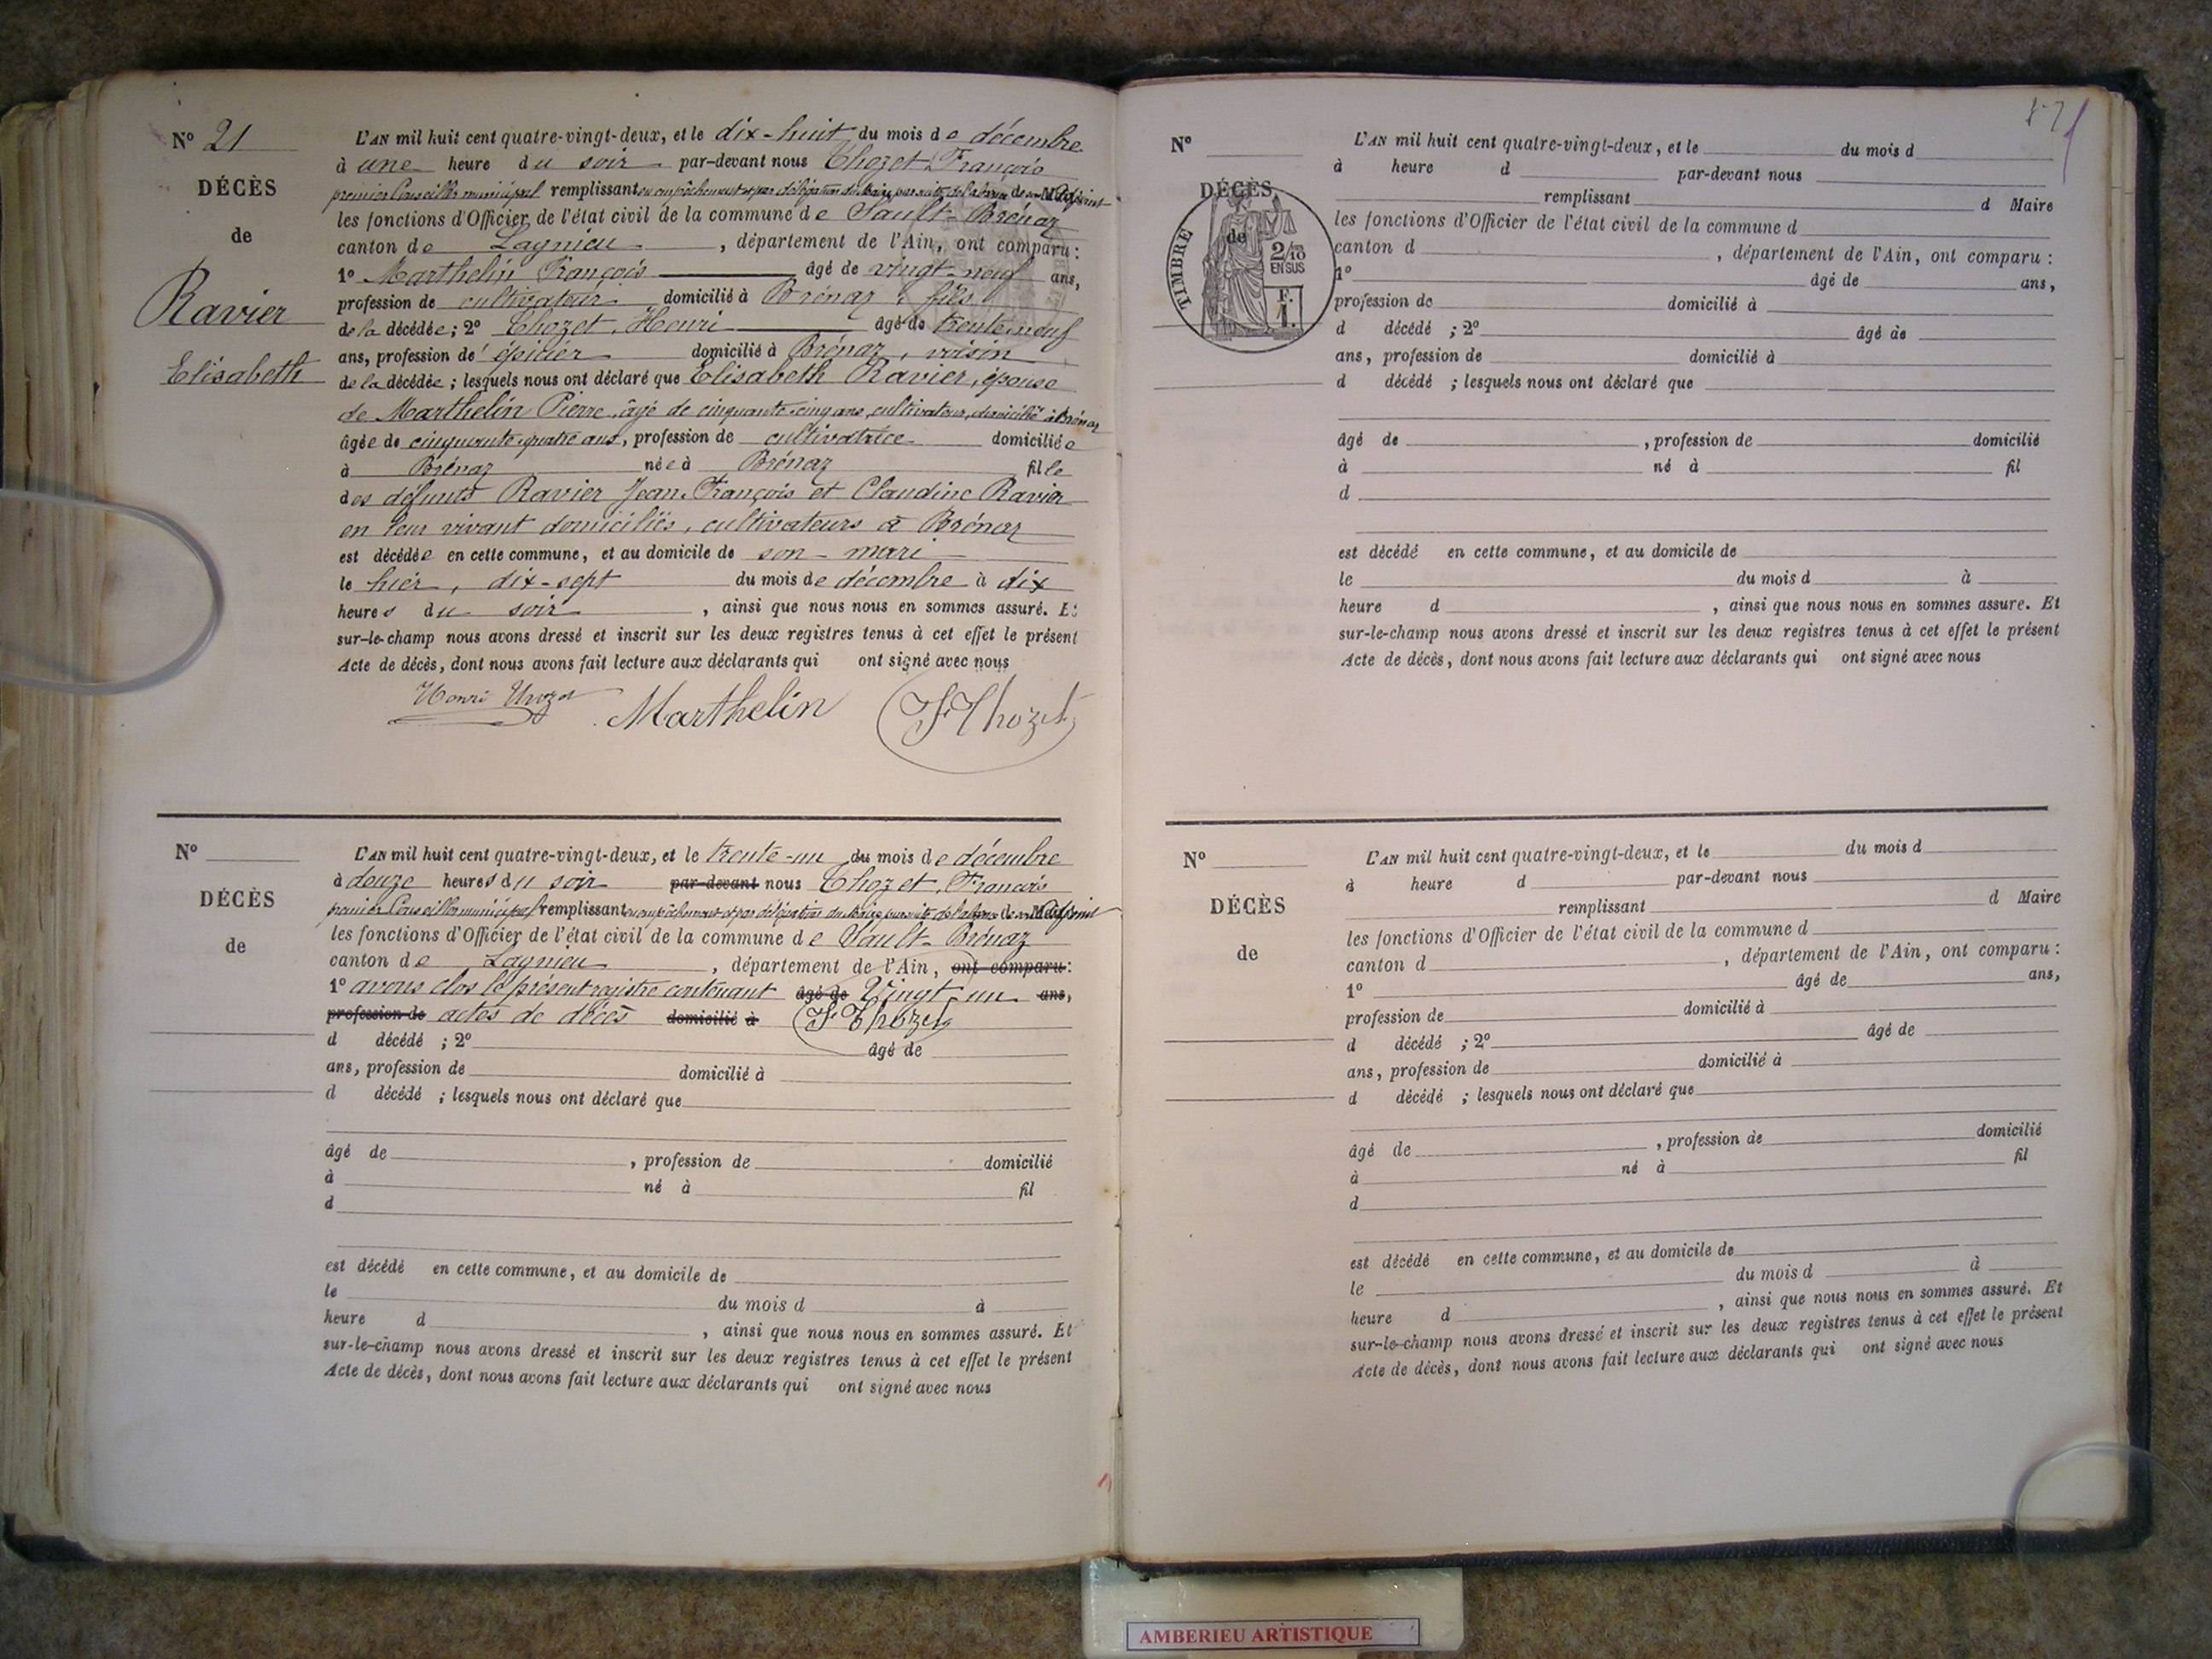 N° 21
DÉCÈS
de
Ravier
Elisabeth
L'AN mil huit cent quatre-vingt-deux, et le dix-huit du mois de décembre
à une heure du soir par-devant nous Thozet François
premier Conseiller municipal remplissant en empêchement et par délégation du Maire, par suite de l'absence de son Adjoint
les fonctions d'Officier de l'état civil de la commune de Sault-Brénaz
canton de Lagnieu, département de l'Ain, ont comparu:
1° Marthelin François âgé de vingt-neuf ans,
profession de cultivateur domicilié à Brénaz, fils
de la décédée; 2° Thozet, Henri âgé de trente neuf
ans, profession de épicier domicilié à Brénaz, voisin
de la décédée; lesquels nous ont déclaré que Elisabeth Ravier, épouse
de Marthelin Pierre, âgé de cinquante-cinq ans, cultivateur, domicilié à Brénaz
âgée de cinquante-quatre ans, profession de cultivatrice domiciliée
à Brénaz née à Brénaz fille
des défunts Ravier Jean-François et Claudine Ravier
en leur vivant domiciliés, cultivateurs à Brénaz
est décédée en cette commune, et au domicile de son mari
le hier, dix-sept du mois de décembre à dix
heures du soir, ainsi que nous nous en sommes assuré. Et
sur-le-champ nous avons dressé et inscrit sur les deux registres tenus à cet effet le présent
Acte de décès, dont nous avons fait lecture aux déclarants qui ont signé avec nous
Henri Thozet Marthelin F Thozet
N°
DÉCÈS
de
L'AN mil huit cent quatre-vingt-deux, et le trente-un du mois de décembre
à douze heures du soir par-devant nous Thozet, François
premier Conseiller municipal remplissant en empêchement et par délégation du Maire, par suite de l'absence de son Adjoint
les fonctions d'Officier de l'état civil de la commune de Sault-Brénaz
canton de Lagnieu, département de l'Ain, ont comparu:
1° avons clos le présent registre contenant âgé de Vingt-un ans,
profession de actes de décès domicilié à F Thozet
d décédé ; 2° âgé de
ans, profession de domicilié à
d décédé ; lesquels nous ont déclaré que
âgé de , profession de domicilié
à né à fil
d
est décédé en cette commune, et au domicile de
le du mois d à
heure d , ainsi que nous nous en sommes assuré. Et
sur-le-champ nous avons dressé et inscrit sur les deux registres tenus à cet effet le présent
Acte de décès, dont nous avons fait lecture aux déclarants qui ont signé avec nous
N°
DÉCÈS
de
TIMBRE
2/10
EN SUS
F.
1.
L'AN mil huit cent quatre-vingt-deux, et le du mois d
à heure d par-devant nous
remplissant d Maire
les fonctions d'Officier de l'état civil de la commune d
canton d , département de l'Ain, ont comparu :
1° âgé de ans,
profession de domicilié à
d décédé ; 2° âgé de
ans, profession de domicilié à
d décédé ; lesquels nous ont déclaré que
âgé de , profession de domicilié
à né à fil
d
est décédé en cette commune, et au domicile de
le du mois d à
heure d , ainsi que nous nous en sommes assuré. Et
sur-le-champ nous avons dressé et inscrit sur les deux registres tenus à cet effet le présent
Acte de décès, dont nous avons fait lecture aux déclarants qui ont signé avec nous
N°
DÉCÈS
de
L'AN mil huit cent quatre-vingt-deux, et le du mois d
à heure d par-devant nous
remplissant d Maire
les fonctions d'Officier de l'état civil de la commune d
canton d , département de l'Ain, ont comparu :
1° âgé de ans,
profession de domicilié à
d décédé ; 2° âgé de
ans, profession de domicilié à
d décédé ; lesquels nous ont déclaré que
âgé de , profession de domicilié
à né à fil
d
est décédé en cette commune, et au domicile de
le du mois d à
heure d , ainsi que nous nous en sommes assuré. Et
sur-le-champ nous avons dressé et inscrit sur les deux registres tenus à cet effet le présent
Acte de décès, dont nous avons fait lecture aux déclarants qui ont signé avec nous
AMBERIEU ARTISTIQUE